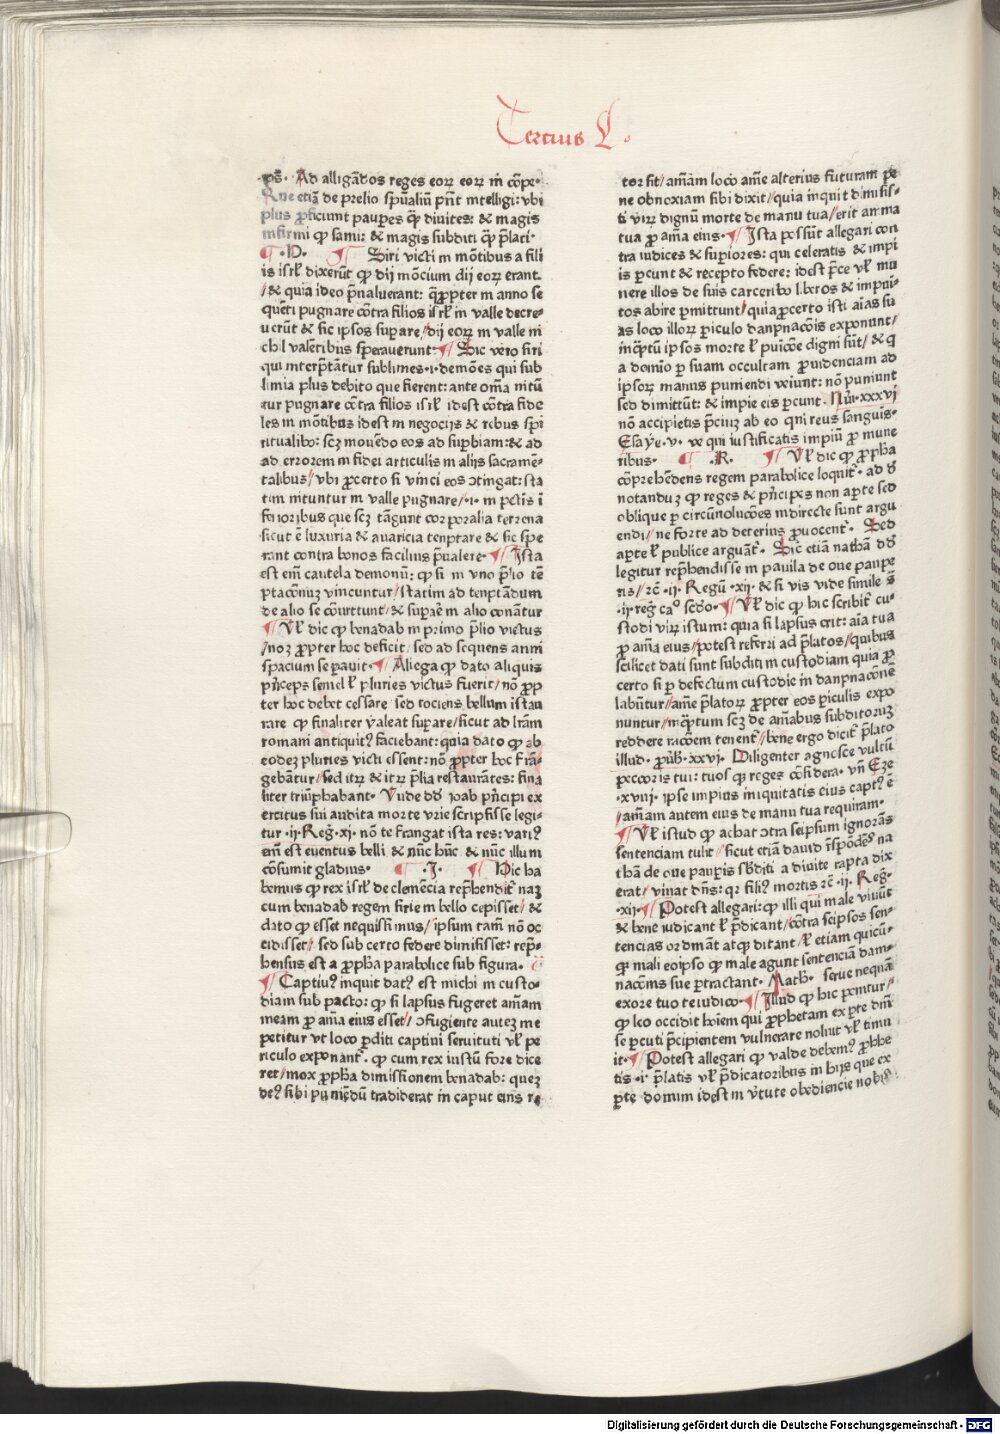 Tercius L.
ps̄. Ad alligādos reges eoꝝ eoꝝ in cōpe.
Que etiā de prelio spūaliū pn̄t intelligi: vbi
plus ꝓficiunt paupes ꝙ̄ diuites: & magis
infirmi ꝙ sani: & magis subditi ꝙ̄ p̄lati.
¶ .D. ¶ Siri victi in mōtibus a fili
is isrl̄ dixerūt ꝙ dij mōcium dij eoꝝ erant.
/& quia ideo p̄ualuerant: q̄ꝓpter in anno se
quēti pugnare cōtra filios isrl̄ in valle decre
uerūt & sic ipsos supare/dij eoꝝ in valle ni
chil valētibus sperauerunt: ¶ Sic vero siri
qui interp̄tātur sublimes .i. demōes qui sub
limia plus debito que fierent: ante om̄a nitū
tur pugnare cōtra filios isrl̄ idest cōtra fide
les in mōtibus idest in negocijs & rebus spi
ritualibꝰ: scꝫ mouēdo eos ad supbiam: & ad
ad errorem in fidei articulis in alijs sacramē-
talibus/ vbi ꝓcerto si vinci eos ɔtingat: sta
tim nituntur in valle pugnare/ .i. in pctis ī
ferioribus que scꝫ tāgunt corporalia terrena
sicut ē luxuria & auaricia temptare & sic spe
rant contra bonos facilius p̄ualere. ¶ Ista
est em̄ cautela demonū: ꝙ si in vno p̄lio tē
ptacōnis vincuntur/statim ad temptādum
de alio se cōuertunt/& supare in alio conātur
¶ Vl̄ dic ꝙ benadab in primo p̄lio victus
/noꝫ ꝓpter hoc deficit/ sed ad sequens anni
spacium se pauit. ¶ Allega ꝙ dato aliquis
p̄nceps semel l̄ pluries victus fuerit/ nō ꝓp
ter hoc debet cessare/ sed tociens bellum istau
rare ꝙ finaliter valeat supare/sicut ad lr̄am
romani antiquitꝰ faciebant: quia dato ꝙ ab
eodeꝫ pluries victi essent: nō ꝓpter hoc frā-
gebātur/sed itꝝ & itꝝ p̄lia restaurātes: fina
liter triūphabant. Vnde dd̄ ioab p̄ncipi ex
ercitus sui audita morte vrie scripsisse legi-
tur .ij. Reḡ. xi. nō te frangat ista res: variꝰ
em̄ est euentus belli & nūc hūc & nūc illum
cōsumit gladius. ¶ .J. ¶ Hic ha
bemus ꝙ rex isrl̄ de clemēcia rep̄hendit naꝫ
cum benadab regem sirie in bello cepisset/ &
dato ꝙ esset nequissimus/ ipsum tam̄ nō oc
cidisset/ sed sub certo federe dimisisset: rep̄-
hensus est a ꝓpha parabolice sub figura. ¶
¶ Captiuꝰ inquit datꝰ est michi in custo-
diam sub pacto: ꝙ si lapsus fugeret am̄am
meam ꝓ am̄a eius esset/ ɔfugiente auteꝫ me
petitur vt loco ꝑditi captini seruituti vl̄ pe
riculo exponant. ꝙ cum rex iustū fore dice
ret/mox ꝓpha dimissionem benadab: queꝫ
deꝰ sibi puniēdū tradiderat in caput eius re
tor sit/ am̄am loco am̄e alterius futuram pe
ne obnoxiam sibi dixit/quia inquit dimisis-
ti virꝝ dignū morte de manu tua/ erit anima
tua ꝓ am̄a eius. ¶ Ista possūt allegari con
tra iudices & supiores: qui celeratis & impi
is pcunt & recepto federe: idest p̄ce vl̄ mu
nere illos de suis carceribꝰ lib̄os & impui-
tos abire permittunt/quia ꝓcerto isti aīas su
as loco illoꝝ piculo danpnacōis exponunt/
inq̄tū ipsos morte l̄ puīcōe digni sūt/ & q
a domīo p suam occultam ꝓuidenciam ad
ipsoꝝ manus puniendi veīunt: nō puniunt
sed dimittūt: & impie eis pcunt. Nūi. xxxvi
nō accipietis p̄ciuꝫ ab eo qui reus sanguis-
Esaye. v. ve qui iustificatis impiū ꝓ mune
ribus. ¶ .K. ¶ Vl̄ dic ꝙ ꝓpha
cōprehēdens regem parabolice loquit. ad ꝺ
notanduꝫ ꝙ reges & p̄ncipes non apte sed
oblique p circūnolucōes indirecte sunt argu
endi/ ne forte ad deterius ꝓuocent. Sed
apte l̄ publice arguāt. Sic etiā nathā dd̄
legitur rep̄hendisse in pauila de oue paupe
ris/ rc̄ .ij. Regū .xij. & si vis vide simile s̄
.ij. reḡ caº scdo. ¶ Vl̄ dic ꝙ hic scribit cu-
stodi virꝝ istum: quia si lapsus erit: aīa tua
ꝓ am̄a eius/potest referri ad p̄latos/quibus
scilicet dati sunt subditi in custodiam quia ꝓ
certo si p defectum custodie in danpnacōne
labūtur/am̄e p̄latoꝝ ꝓpter eos piculis expo
nuntur/inq̄tum scꝫ de am̄abus subditoruꝫ
reddere racōem tenent//bene ergo dicit p̄lato
illud. ꝓub. xxvi. Diligenter agnosce vultū
pecoris tui: tuos ꝙ reges cōsidera. vn̄ Eze
.xviij. ipse impius iniquitatis eius captꝰ ē
/am̄am autem eius de manu tua requiram.
¶ Vl̄ istud ꝙ acbat ɔtra seipsum ignorās
sentenciam tulit/ sicut etiā dauid r̄spōdēs na
thā de oue paupis sb̄diti a diuite rapta dix
erat/ viuat dn̄s: qr filiꝰ mortis rc̄ .ij. Reḡ.
.xij. ¶ Potest allegari: ꝙ illi qui male viuūt
& bene iudicant l̄ p̄dicant/cōtra seipsos sen-
tencias ordināt atqꝫ dictant/ l̄ etiam quicū-
qꝫ mali eoipso ꝙ male agunt sentenciā dam-
nacōnis sue ptractant. Math. serue nequā
ex ore tuo te iudico. ¶ Illud ꝙ hic ponitur/
ꝙ leo occidit hoīem qui ꝓphetam ex pte dn̄i
se pcuti p̄cipientem vulnerare noluit vl̄ timu
it. ¶ Potest allegari ꝙ valde debemꝰ ꝓphe
tis .i. p̄latis vl̄ p̄dicatoribus in hijs que ex
pte domini idest in v̄tute obediencie nobis
Digitalisierung gefördert durch die Deutsche Forschungsgemeinschaft - DFG